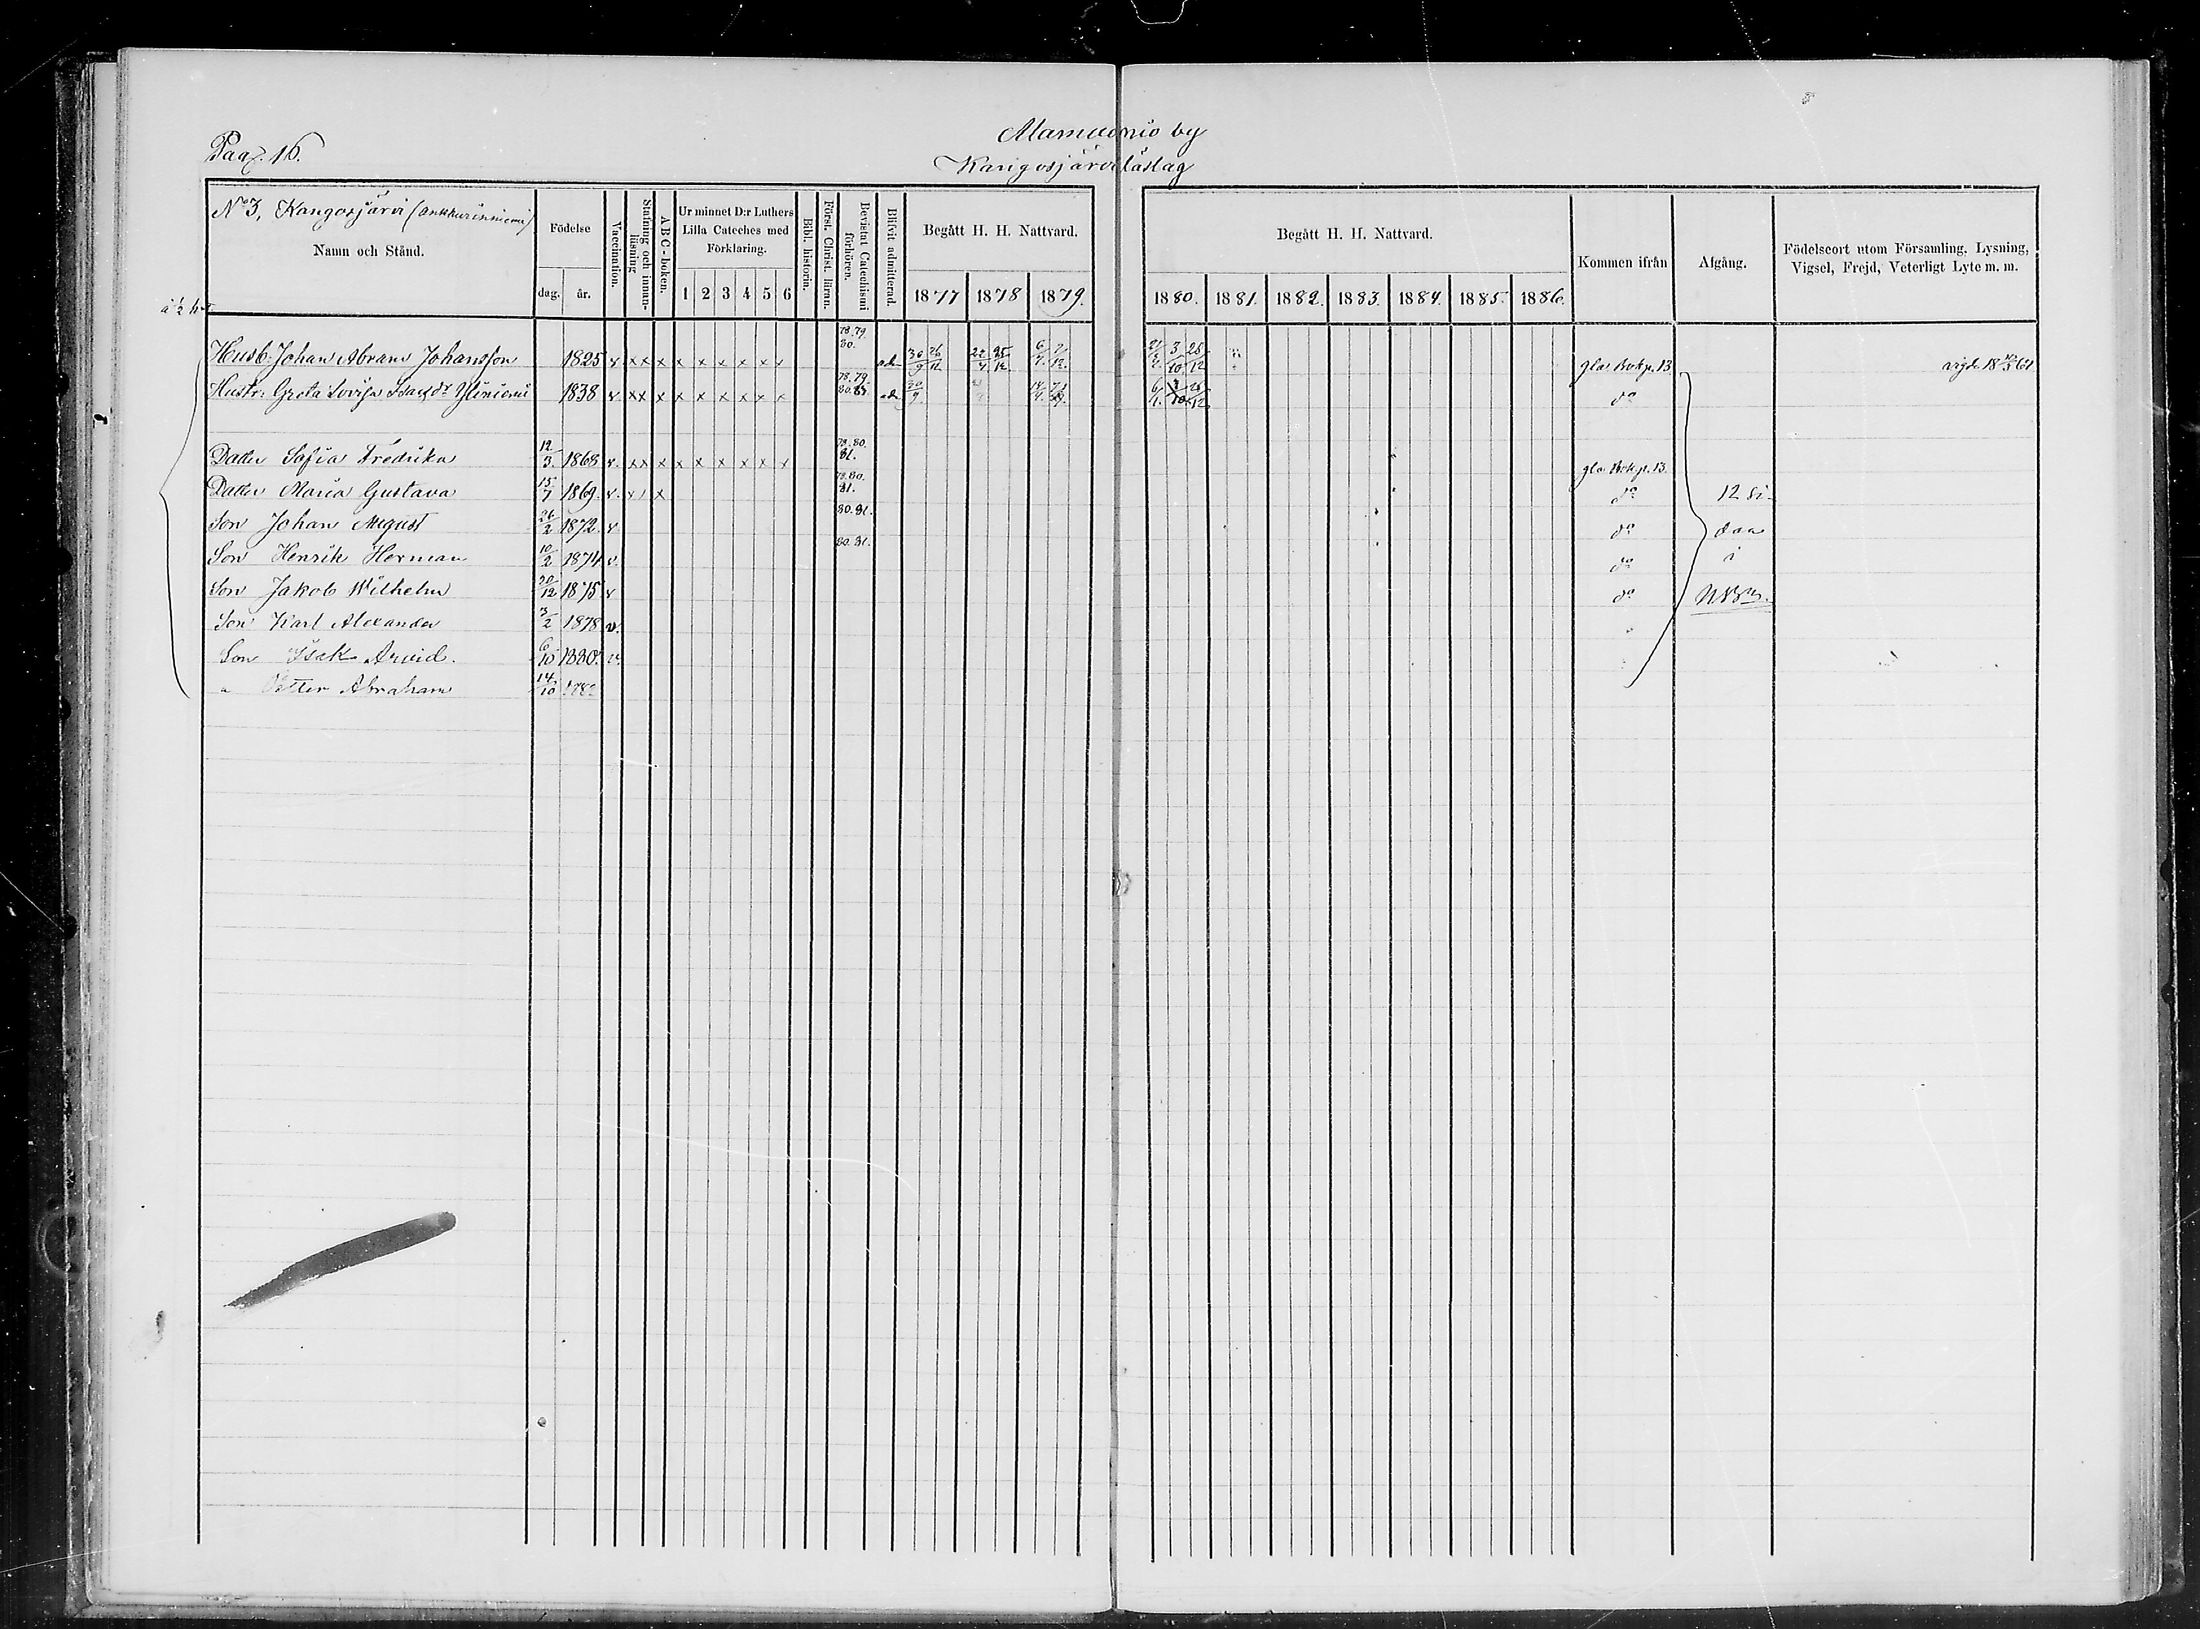 Pag. 16.
Alamuonio by
Kangosjärvi läslag
No 3, Kangosjärvi (Ankkuriniemi)
Namn och Stånd.
Födelse
dag. år.
Vaccination.
Stafning och innan-läsning
ABC-boken.
Ur minnet D:r Luthers Lilla Cateches med Förklaring.
1 2 3 4 5 6
Bibl. historia.
Först. Christ. läran.
Bevistat Catechismi förhören.
Blifvit admitterad.
Begått H. H. Nattvard.
1877 1878 1879.
Begått H. H. Nattvard.
1880. 1881. 1882. 1883. 1884. 1885. 1886.
Kommen ifrån
Afgång.
Födelseort utom Församling, Lysning, Vigsel, Frejd, Veterligt Lyte m. m.
Husb: Johan Abram Johansson 1825 v. x x x x x x x x x 78. 79. 80. adm 30/9 26/12 22/4 25/12 6/4 21/12 3/10 28/12 gla Bok p. 13 vigde 18 /3 61
Hustr: Greta Lovisa Isaksdr Yliniemi 1838 v x x x x x x x x x 78. 79. 80. 81. adm 30/9 14/4 6/4 28/12 do
Dotter Sofia Fredrika 12/3 1868 v. x x x x x x x x x 79. 80. 81. gla Bok p. 13.
Dotter Maria Gustava 15/7 1869. v. x x 79. 80. 81. do 12 si-
Son Johan August 26/2 1872. v. 80. 81. do daa
Son Henrik Herman 10/2 1874 v. 80. 81. do i
Son Jakob Wilhelm 30/12 1875 v do NBn.
Son Karl Alexander 3/2 1878 v.
Son Isak Arvid. 6/10 1880. v.
" Petter Abraham 14/10 188